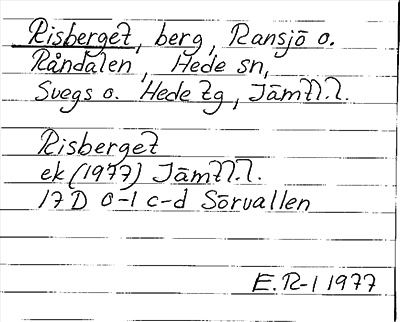 Risberget, berg, Ransjö o.
Råndalen, Hede sn,
Svegs o. Hede tg, Jämtl.l.
Risberget
ek (1977) Jämtl.l.
17D 0-1 c-d Sörvallen
E.R-l 1977